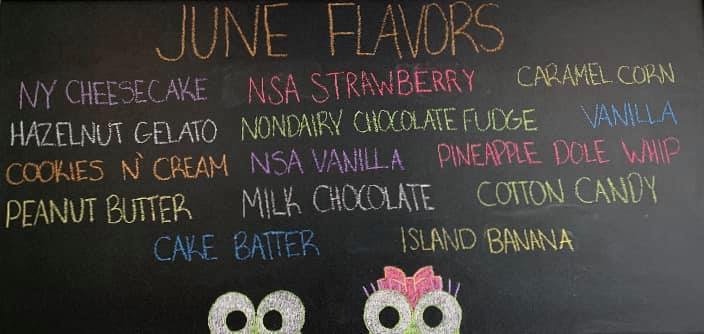 JUNE FLAVORS
NY CHEESECAKE NSA STRAWBERRY CARAMEL CORN
HAZELNUT GELATO NONDAIRY CHOCOLATE FUDGE VANILLA
COOKIES N' CREAM NSA VANILLA PINEAPPLE DOLE WHIP
PEANUT BUTTER MILK CHOCOLATE COTTON CANDY
CAKE BATTER ISLAND BANANA